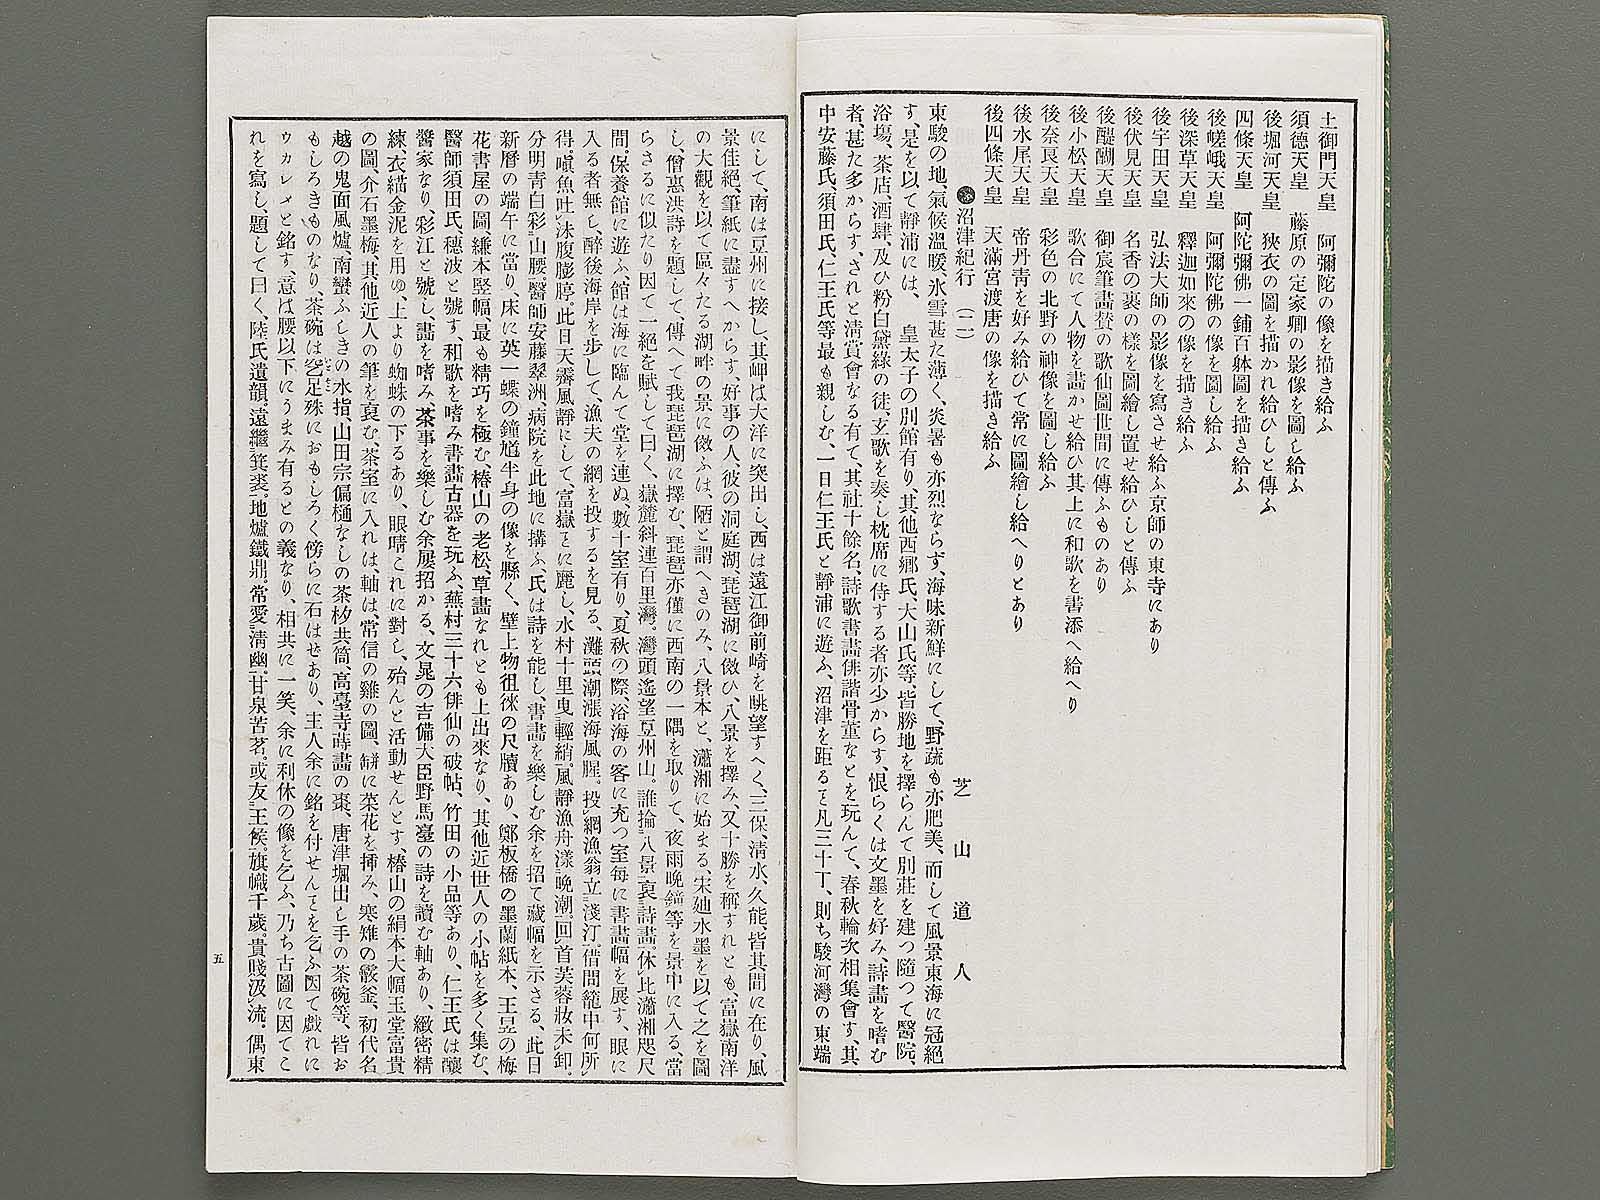 土御門天皇　阿彌陀の像を描き給ふ
須德天皇　藤原の定家卿の影像を圖し給ふ
後堀河天皇　狹衣の圖を描かれ給ひしと傳ふ
四條天皇　阿陀彌佛一鋪百躰圖を描き給ふ
後嵯峨天皇　阿彌陀佛の像を圖し給ふ
後深草天皇　釋迦如來の像を描き給ふ
後宇田天皇　弘法大師の影像を寫させ給ふ京師の東寺にあり
後伏見天皇　名香の裹の樣を圖繪し置せ給ひしと傳ふ
後醍醐天皇　御宸筆畫賛の歌仙圖世間に傳ふものあり
後小松天皇　歌合にて人物を畵かせ給ひ其上に和歌を書添へ給へり
後奈良天皇　彩色の北野の神像を圖し給ふ
後水尾天皇　帝丹靑を好み給ひて常に圖繪し給へりとあり
後四條天皇　天滿宮渡唐の像を描き給ふ
沼津紀行（二）　芝山道人
東駿の地、氣候溫暖、氷雪甚た薄く、炎暑も亦烈ならず、海味新鮮にして、野蔬も亦肥美、而して風景東海に冠絕
す、是を以て靜浦には、　皇太子の別館有り、其他西鄕氏、大山氏等、皆勝地を擇らんて別莊を建つ隨つて醫院、
浴塲、茶店、酒肆、及ひ粉白黛綠の徒、玄歌を奏し枕席に侍する者亦少からす、恨らくは文墨を好み、詩畵を嗜む
者、甚た多からす、されと淸賞會なる有て、其社十餘名、詩歌書畵俳諧骨董なとを玩んて、春秋輪次相集會す、其
中安藤氏、須田氏、仁王氏等最も親しむ、一日仁王氏と靜浦に遊ふ、沼津を距るヿ凡三十丁、則ち駿河灣の東端
にして、南は豆州に接し、其岬は大洋に突出し、西は遠江御前崎を眺望すへく、三保、淸水、久能、皆其間に在り、風
景佳絕、筆紙に盡すへからす、好事の人、彼の洞庭湖、琵琶湖に倣ひ、八景を擇み、又十勝を稱すれとも、富嶽南洋
の大觀を以て區々たる湖畔の景に倣ふは、陋と謂へきのみ、八景本と、瀟湘に始まる、宋廸水墨を以て之を圖
し、僧惠洪詩を題して、傳へて我琵琶湖に擇む、琵琶亦僅に西南の一隅を取りて、夜雨晩鐘等を景中に入る、當
らさるに似たり因て一絕を賦して曰く、嶽麓斜連百里灣。灣頭遙望豆州山。誰掄八景裒詩畵。休比瀟湘咫尺
間。保養館に遊ふ、館は海に臨んて堂を連ぬ、數十室有り、夏秋の際、浴海の客に充つ室每に書畵幅を展す、眼に
入る者無し、醉後海岸を步して、漁夫の網を投するを見る、灘頭潮漲海風腥。投網漁翁立淺汀。借問籠中何所
得。嗔魚吐沫腹膨脝。此日天霽風靜にして、富嶽ヿに麗し、水村十里曳輕綃。風靜漁舟漾晩潮。回首芙蓉妝未卸。
分明靑白彩山腰。醫師安藤翠洲、病院を此地に搆ふ、氏は詩を能し、書畵を樂しむ余を招て藏幅を示さる、此日
新曆の端午に當り、床に英一蝶の鐘馗半身の像を縣く、壁上物徂徠の尺牘あり、鄭板橋の墨蘭紙本、王昱の梅
花書屋の圖縑本竪幅、最も精巧を極む、椿山の老松、草畵なれとも上出來なり、其他近世人の小帖を多く集む、
醫師須田氏、穗波と號す、和歌を嗜み書畵古器を玩ふ、蕪村三十六俳仙の破帖、竹田の小品等あり、仁王氏は釀
醬家なり、彩江と號し、畵を嗜み茶事を樂しむ余屢招かる、文晁の吉備大臣野馬臺の詩を讀む軸あり、緻密精
練衣緢金泥を用ゆ、上より蜘蛛の下るあり、眼晴これに對し、殆んと活動せんとす、椿山の絹本大幅玉堂富貴
の圖、介石墨梅、其他近人の筆を裒む、茶室に入れは、軸は、常信の雞の圖、缾に菜花を揷み、寒雉の霰釜、初代名
越の鬼面風爐、南蠻ふしきの水指、山田宗偏樋なしの茶杓共筒、高臺寺蒔畵の棗、唐津堀出し手の茶碗等、皆お
もしろきものなり、茶碗は乞足殊におもしろく傍らに石はせあり、主人余に銘を付せんヿを乞ふ因て戲れに
ウカレメと銘す、意は腰以下にうまみ有るとの義なり、相共に一笑、余に利休の像を乞ふ、乃ち古圖に因てこ
れを寫し題して曰く、陸氏遺韻。遠繼箕裘。地爐鐵鼎。常愛淸幽。甘泉苦茗。或友王候。旗幟千歲。貴賤汲流。偶東
五